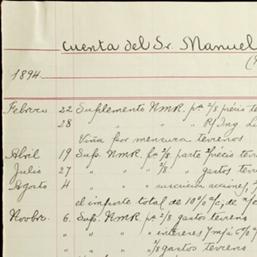 Cuenta del Sr. Manuel
1894.
Febrero 22 Suplemento NMR. pª 2/8 précio te
28 " " " P/ Ing. L
Viña por mensura terrenos
Abril 19 Sup. NMR. pª 2/8 parte précio terre
Julio 27 " " " 1/8 " gastos terre
Agosto 4 " " " suscricion acciones,
el importe total de 10% a/c, de
Novbre. 6. Sup. NMR pª 2/8 gastos terreno
" " " intereses y c/
" " 1/8 gastos terreno